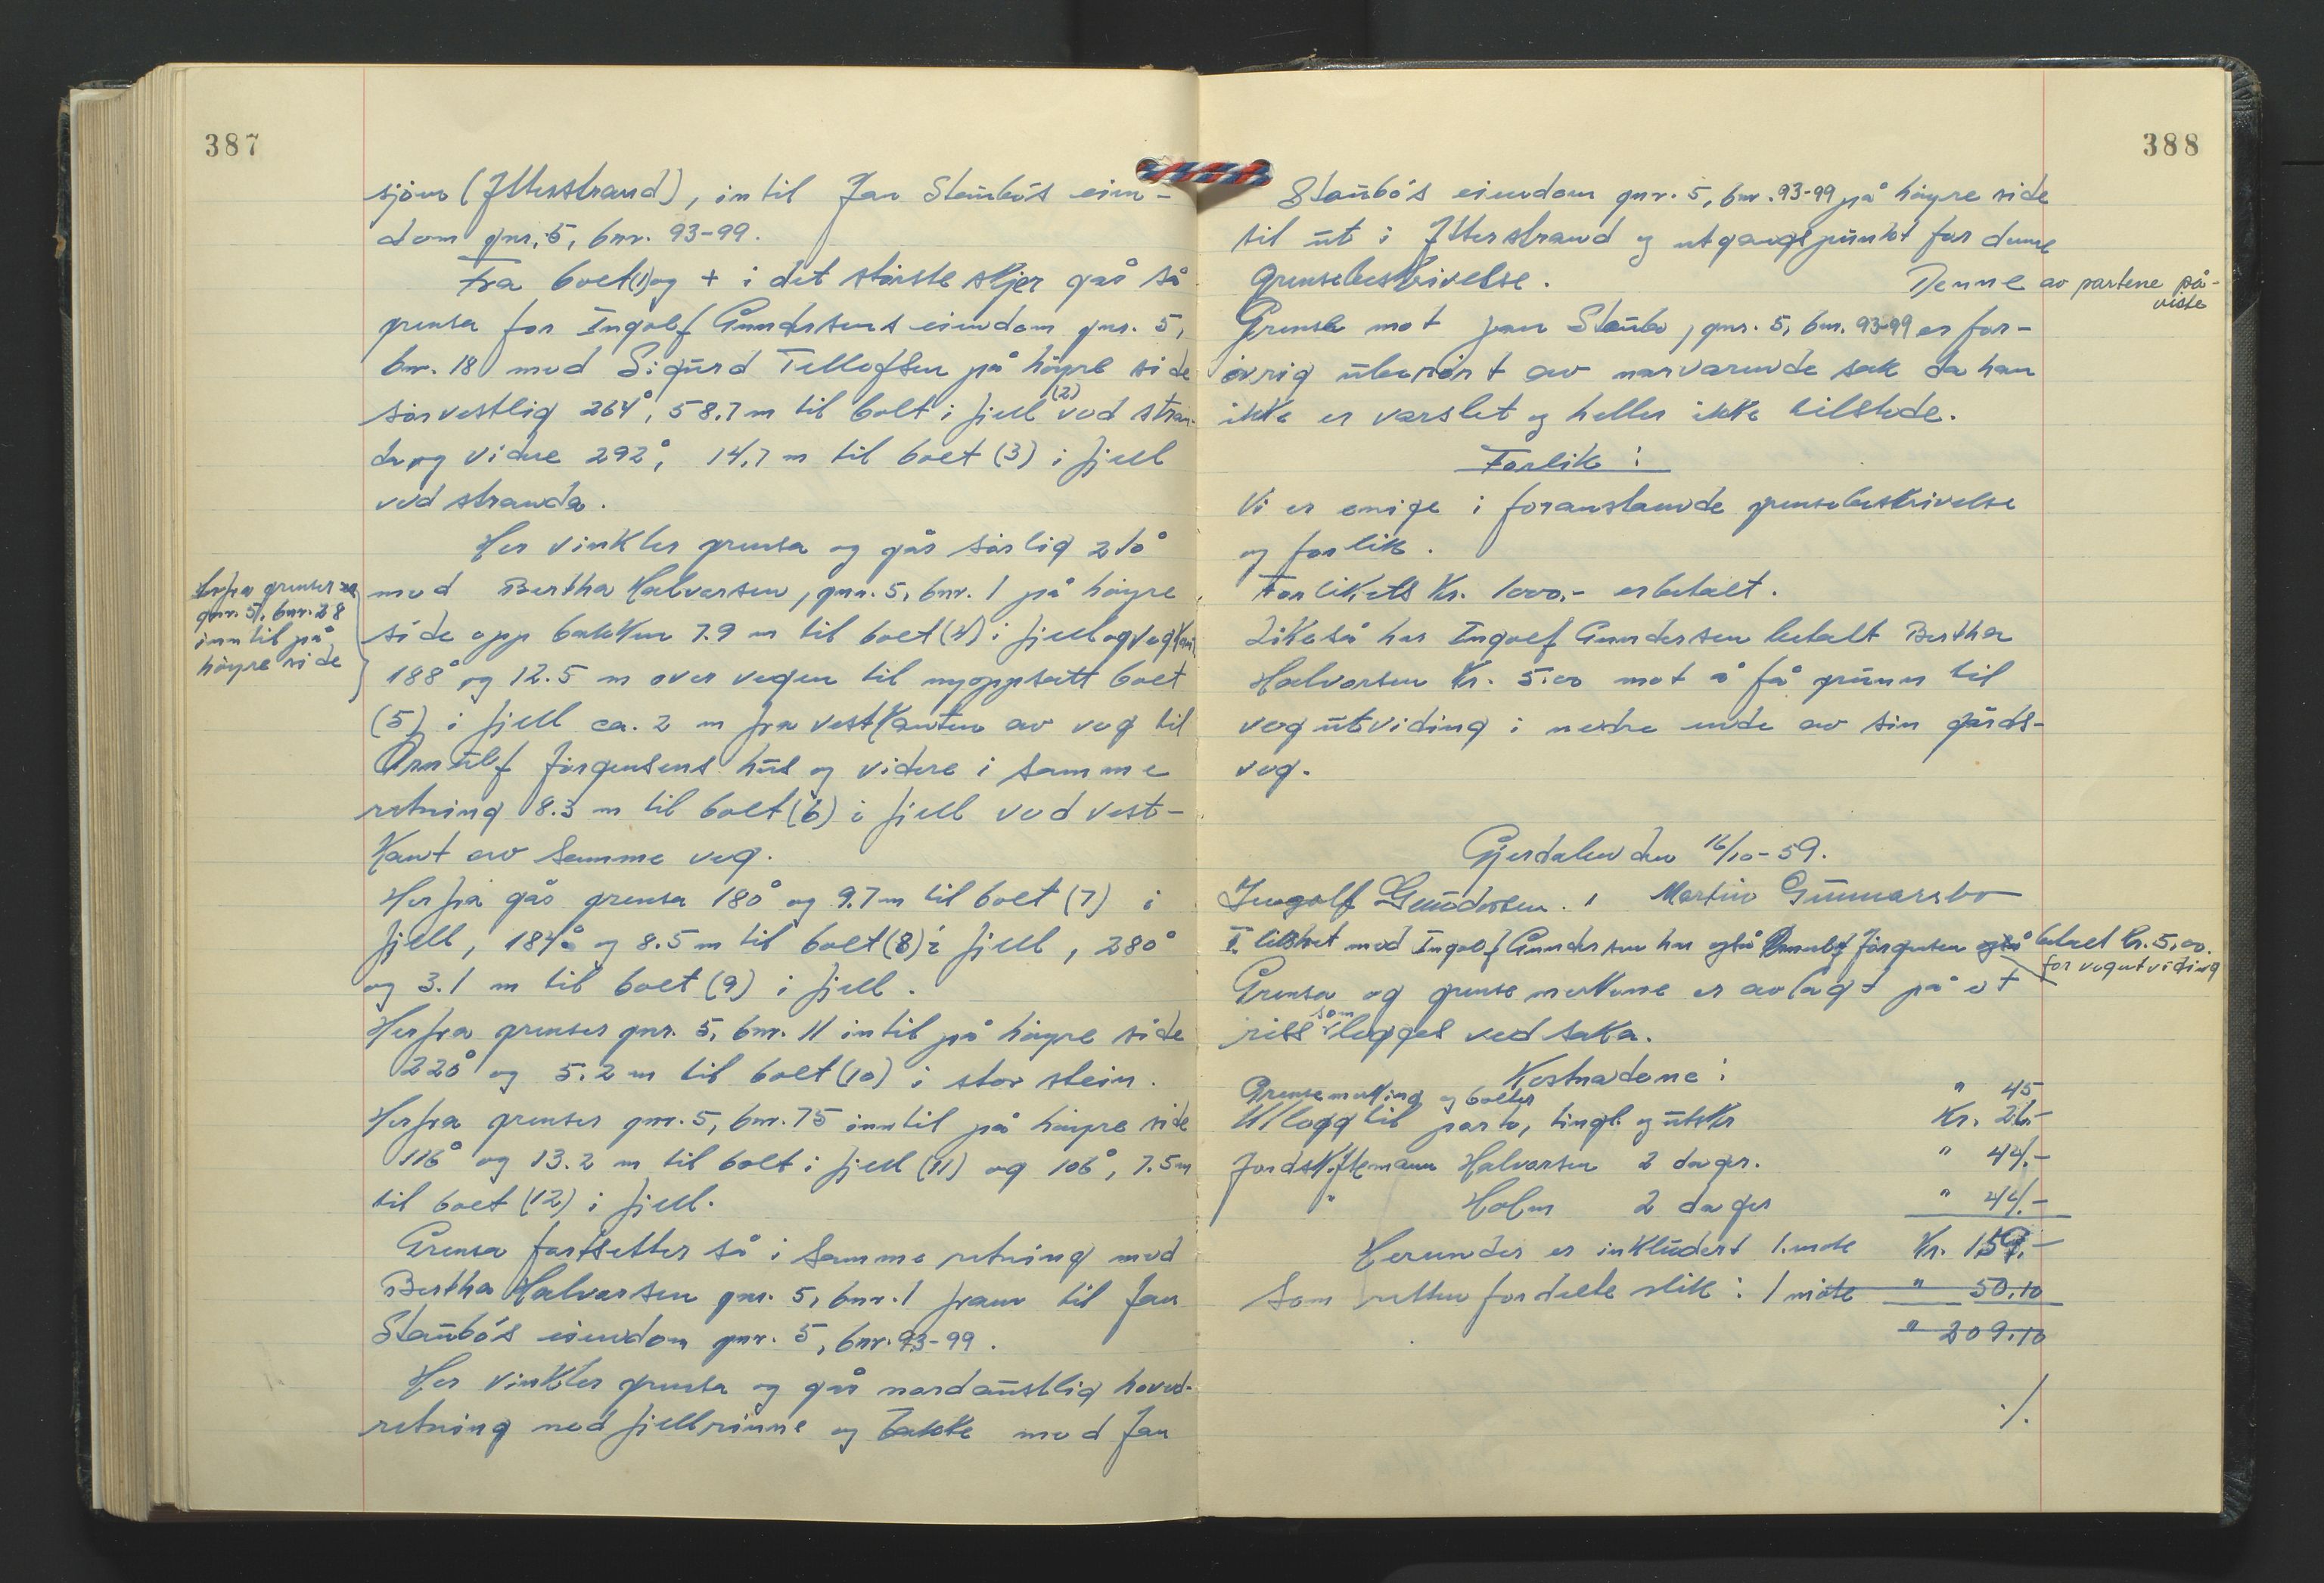 387
sjøen (Itterstrand), intil Jan Staubo's eien-
dom gnr. 5, bnr. 93-99.
Fra bolt (1) og + i det største skjer går så
grensa for Ingolf Gundersens eiendom gnr. 5,
bnr. 18 med Sigurd Tellefsen på høyre side
sørvestlig 264°, 58.7 m til bolt i fjell (2) ved stran-
da og videre 292°, 14.7 m til bolt (3) i fjell
ved stranda.
Her vinkler grensa og går sørlig 210°
med Bertha Halvorsen, gnr. 5, bnr. 1 på høyre
side opp bakken 7.9 m til bolt (4) i fjell og vegkant
188° og 12.5 m over vegen til nyoppsatt bolt
(5) i fjell ca. 2 m fra vestkanten av veg til
Arnulf Jørgensens hus og videre i samme
retning 8.3 m til bolt (6) i fjell ved vest-
kant av samme veg.
Herfra går grensa 180° og 9.7 m til bolt (7) i
fjell, 184° og 8.5 m til bolt (8) i fjell, 280°
og 3.1 m til bolt (9) i fjell.
Herfra grenser gnr. 5, bnr. 11 intil på høyre side
220° og 5.2 m til bolt (10) i stor stein.
Herfra grenser gnr. 5, bnr. 75 inntil på høyre side
116° og 13.2 m til bolt i fjell (11) og 106°, 7.5 m
til bolt (12) i fjell.
Grensa fortsetter så i samme retning med
Bertha Halvorsen gnr. 5, bnr. 1 fram til Jan
Staubo's eiendom gnr. 5, bnr. 93-99.
Her vinkler grensa og går nordaustlig hoved-
retning ned fjellrinne og bakke med Jan
Herfra grenser
gnr. 5, bnr. 28
inntil på
høyre side
388
Staubo's eiendom gnr. 5, bnr. 93-99 på høyre side
til ut i Itterstrand og utgangspunktet for denne
grensebeskrivelse. Denne av partene på-
viste
Grense mot Jan Staubo, gnr. 5, bnr. 93-99 er for-
øvrig uberørt av nærværende sak da han
ikke er varslet og heller ikke tilstede.
Forlik:
Vi er enige i foranstående grensebeskrivelse
og forlik.
Forlikets kr. 1000,- er betalt.
Likeså har Ingolf Gundersen betalt Bertha
Halvorsen kr. 5.00 mot å få grunn til
vegutviding i nedre ende av sin gårds-
veg.
Gjerdalen den 16/10-59.
Ingolf Gundersen. , Martin Gunnarsbo
I likhet med Ingolf Gundersen har også Arnulf Jørgensen også betalt kr. 5,00.
for vegutviding
Grensa og grensemerkene er avlagt på et
riss som legges ved saka.
Kostnadene:
Grensemerking og bolter " 45
Utlegg til porto, tingl. og utskr Kr. 26.-
Jordskiftemann Halvorsen 2 dager. " 44.-
" Holm 2 dager " 44.-
Herunder er inkludert 1. møte Kr. 159.-
Som retten fordelte slik: 1 møte " 50.10
" 209.10
./.